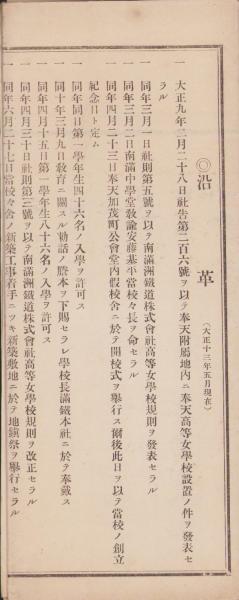 ◎沿革
(大正十三年五月現在)
一 大正九年二月二十八日社告第二百六號ヲ以テ奉天附屬地内ニ奉天高等女學校設置ノ件ヲ發表セ
ラル
一 同年三月一日社則第五號ヲ以テ南滿洲鐵道株式會社高等女學校規則ヲ發表セラル
一 同年三月二日南滿中學堂教諭安藤基平當校々長ヲ命セラル
一 同年四月二十三日奉天加茂町公會堂内假校舍ニ於テ開校式ヲ擧行ス爾後此日ヲ以テ當校ノ創立
紀念日ト定ム
一 同年同日第一學年生四十六名ノ入學ヲ許可ス
一 同十年三月九日敎育ニ關スル勅語ノ謄本ヲ下賜セラレ學校長滿鐵本社ニ於テ奉戴ス
一 同年四月十五日第一學年生八十六名ノ入學ヲ許可ス
一 同年四月三十日社則第三號ヲ以テ南滿洲鐵道株式會社高等女學校規則ヲ改正セラル
一 同年六月二十七日當校々舍ノ新築工事着手ニツキ新築敷地ニ於テ地鎭祭ヲ擧行セラル